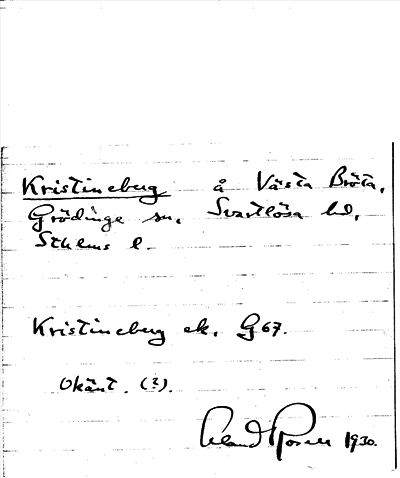 Kristineberg å Västa Bröta,
Grödinge sn. Svartlösa hd,
Sthlms l.
Kristineberg ek. G67.
Okänt. (?).
Erland Rosell 1930.